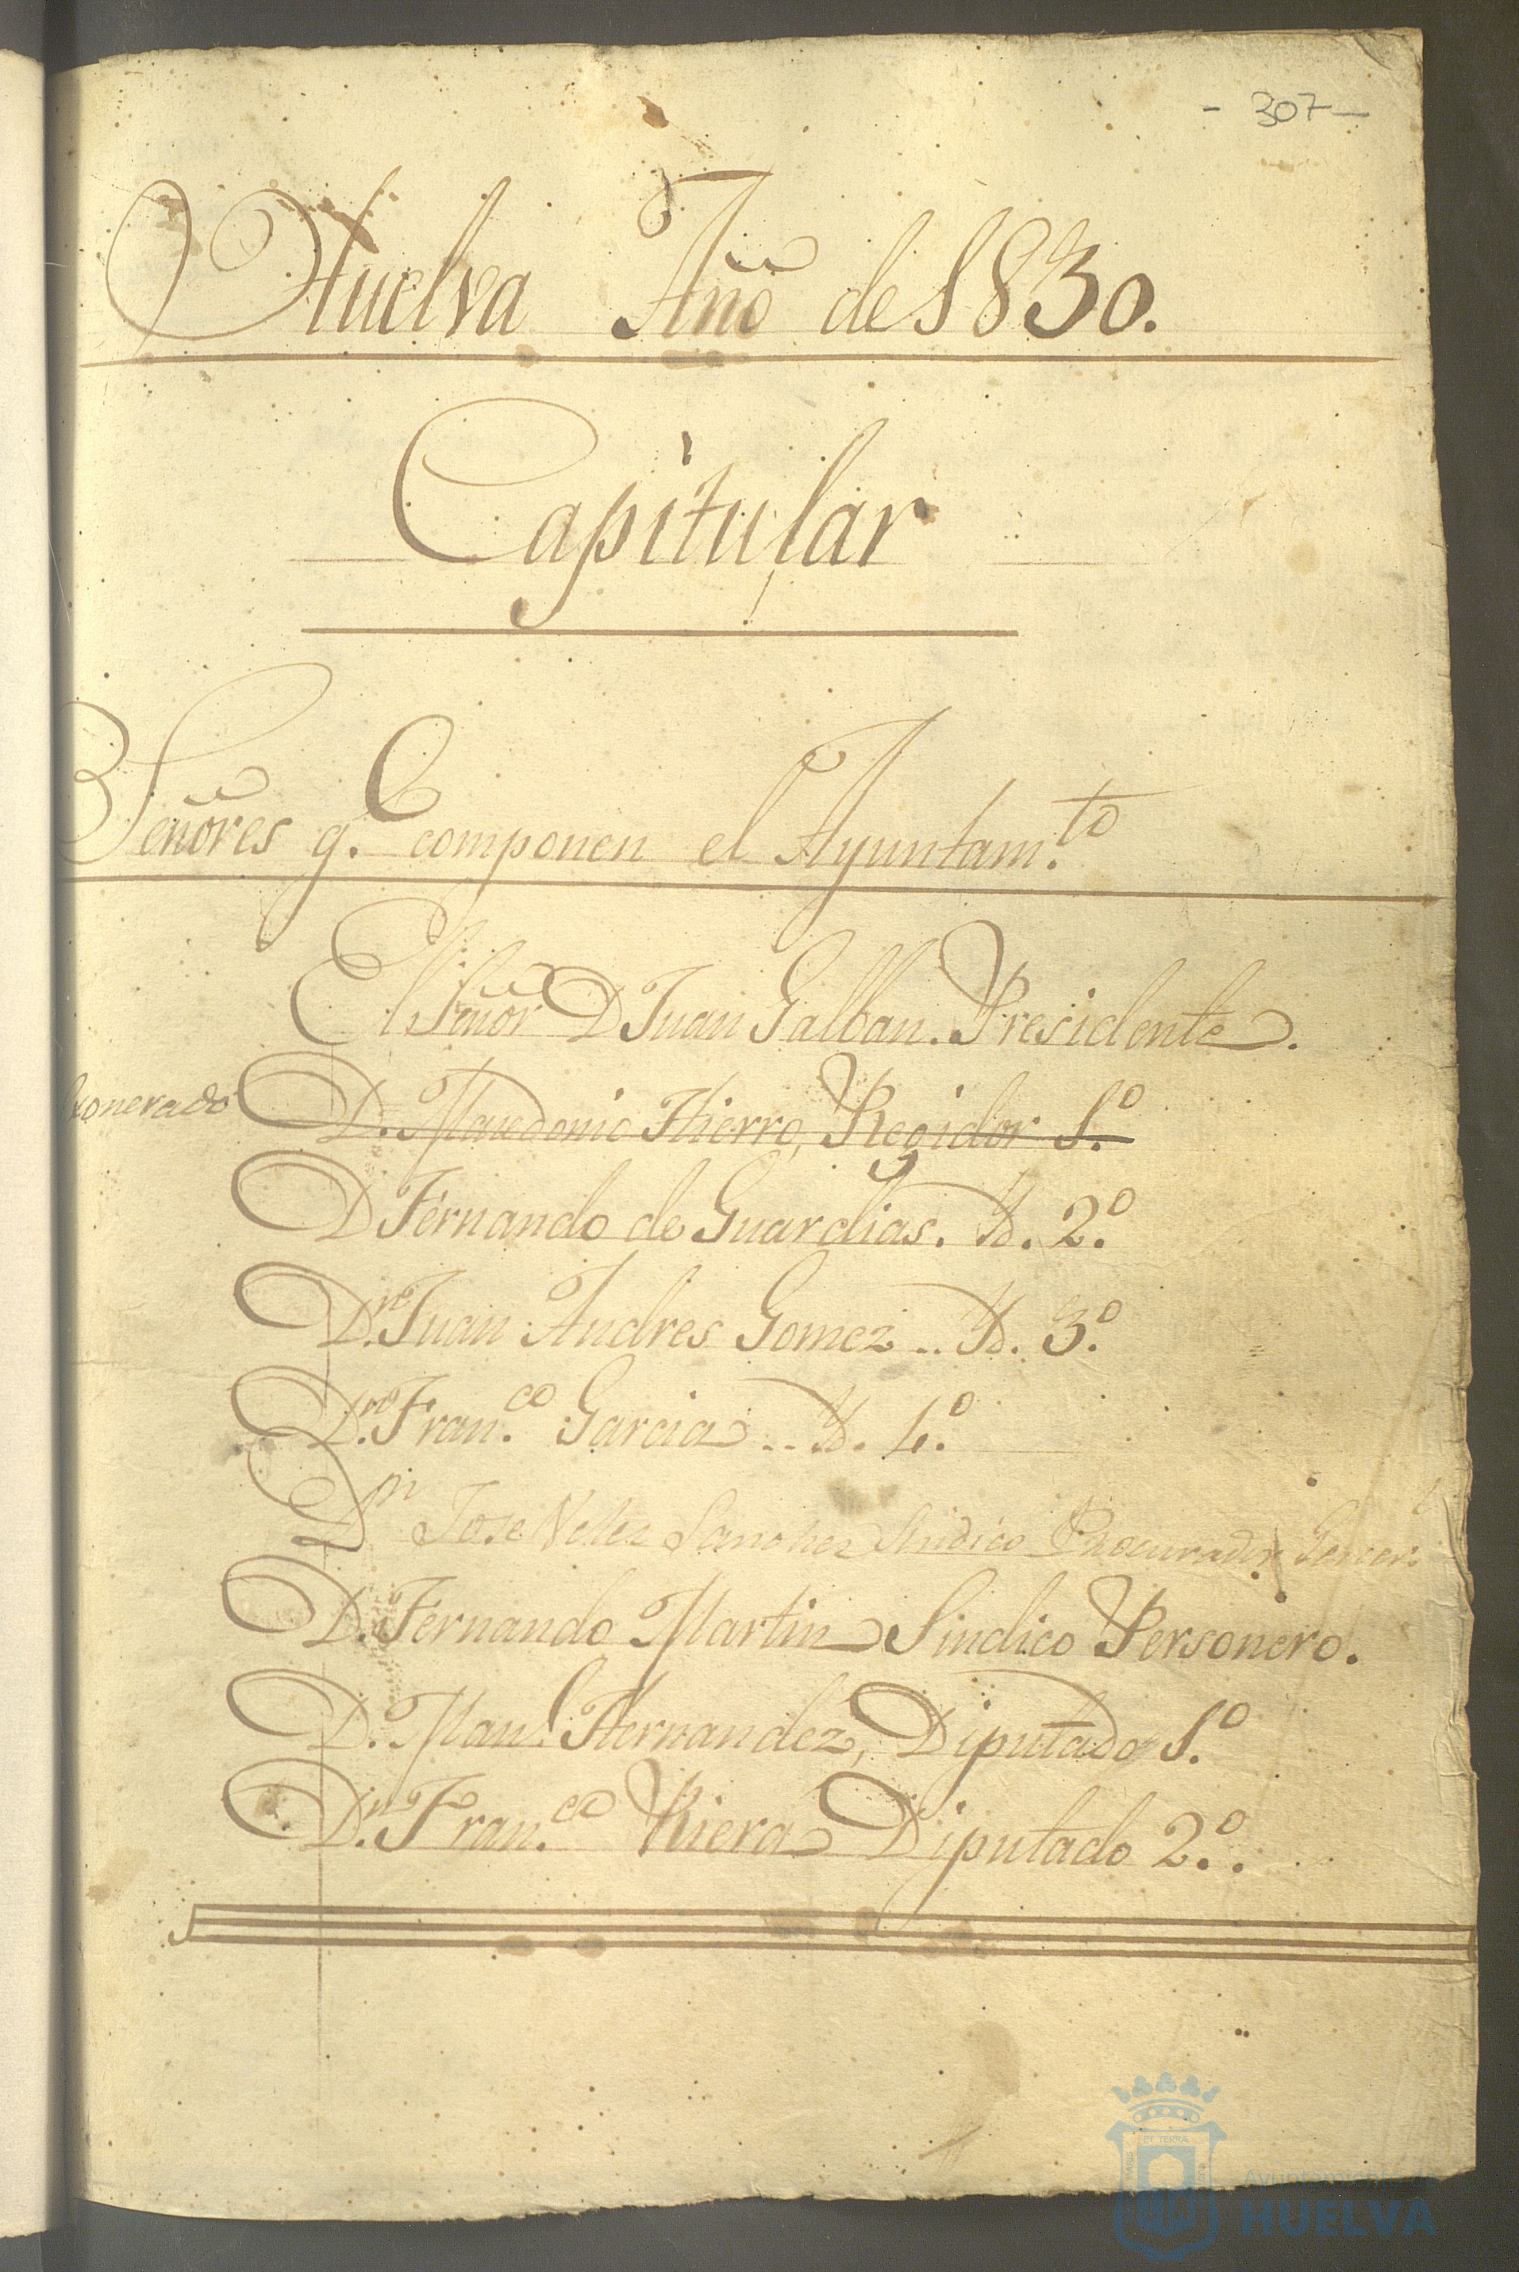 - 307 -
Huelva Año de 1830.
Capitular
Señores q.e componen el Ayuntam.to
El Señor D Juan Galban. Presidente.
Exonerado D. Macedonio Hierro, Regidor 1.º
D Fernando de Guardias. Yd. 2.º
D.n Juan Andres Gomez .. Yd. 3.º
D.n Fran.co Garcia .. Yd. 4.º
Dn Jose Velez Sanchez Sindico Procurador
D. Fernando Martin Sindico Personero.
D. Man.l Hernandez, Diputado 1.º
D.n Fran.co Riera Diputado 2.º.
Ayuntamiento de
HUELVA